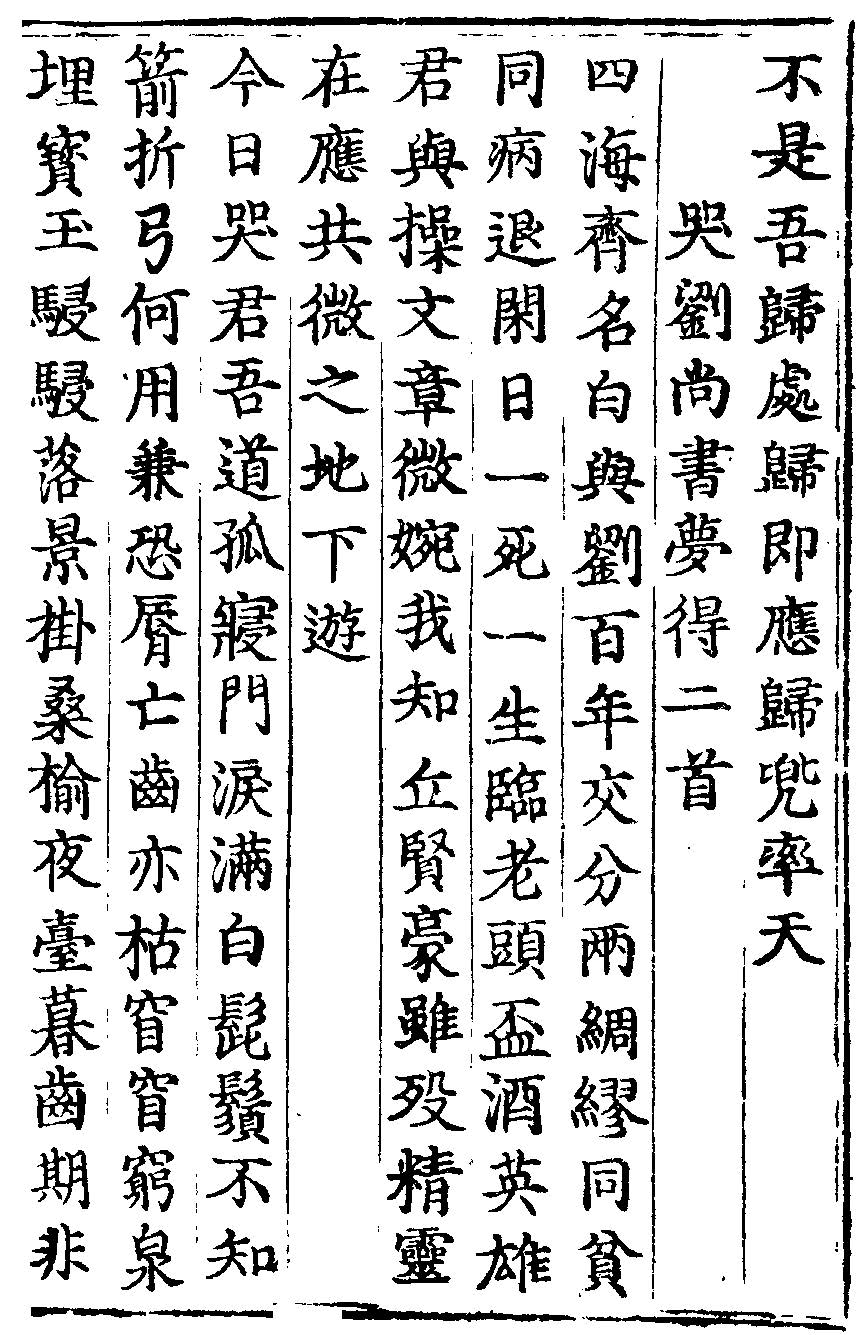 不是吾歸處歸即應歸兜率天
哭劉尚書夢得二首
四海齊名白與劉百年交分兩綢繆同貧
同病退閑日一死一生臨老頭盃酒英雄
君與操文章微婉我知丘賢豪雖歿精靈
在應共微之地下遊
今日哭君吾道孤寢門淚滿白髭鬚不知
箭折弓何用兼恐脣亡齒亦枯窅窅窮泉
埋寳玉駸駸落景掛桑榆夜臺暮齒期非